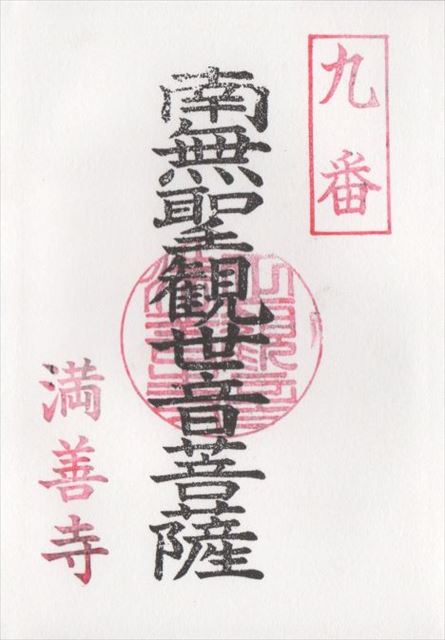 九番
南無聖観世音菩薩
満善寺